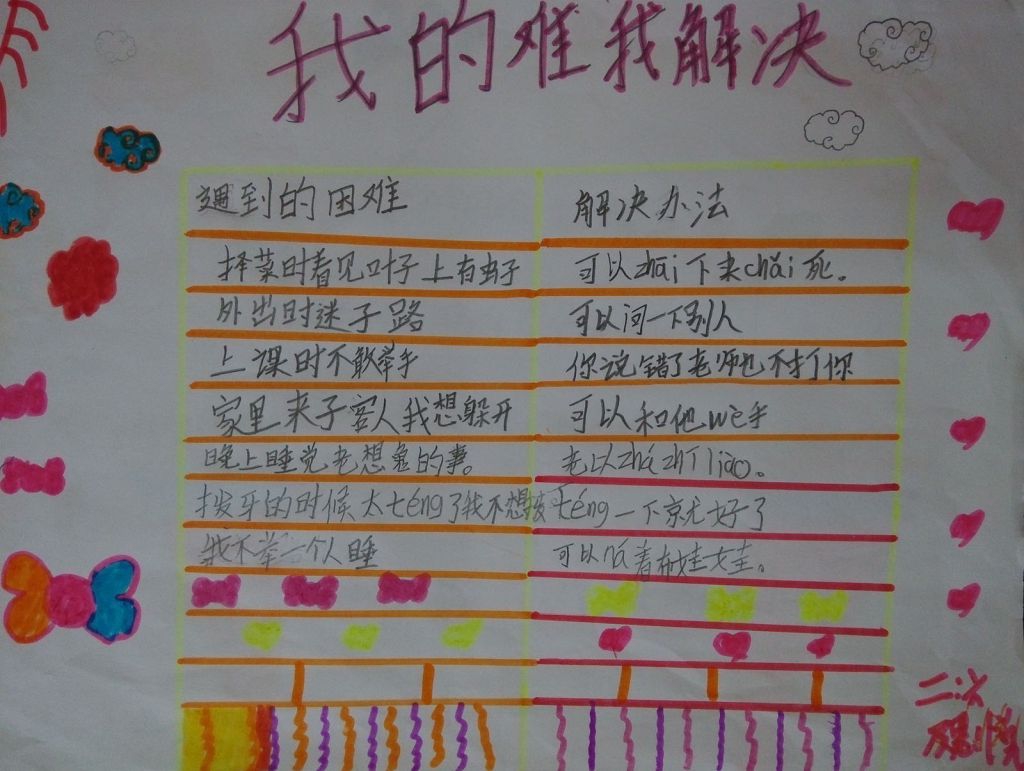 我的难我解决
遇到的困难 解决办法
择菜时看见叶子上有虫子 可以zhāi下来chǎi死。
外出时迷子路 可以问一下别人
上课时不敢举手 你说错了老师也不打你
家里来子客人我想躲开 可以和他wè手
晚上睡觉老想鬼的事。 老以zházhīliào。
拔牙的时候太téng了我不想拔 téng一下京尤好了
我不举一个人睡 可以 着布娃娃。